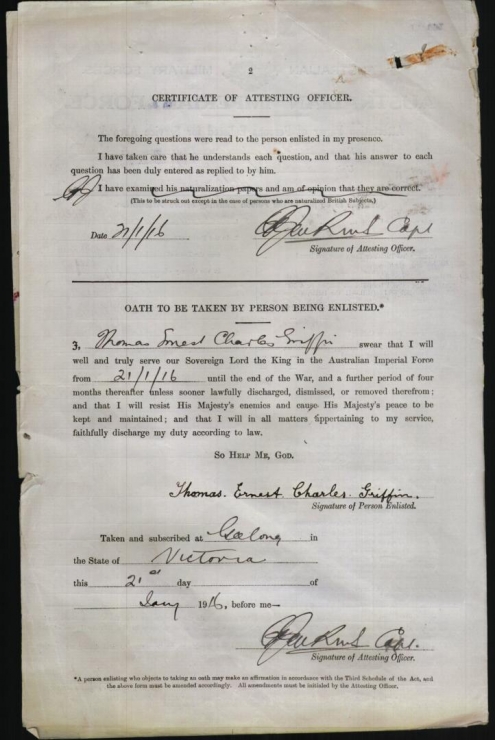 2
CERTIFICATE OF ATTESTING OFFICER.
The foregoing questions were read to the person enlisted in my presence.
I have taken care that he understands each question, and that his answer to each
question has been duly entered as replied to by him.
I have examined his naturalization papers and am of opinion that they are correct.
(This to be struck out except in the case of persons who are naturalized British Subjects.)
Date 21/1/16 Capt
Signature of Attesting Officer.
OATH TO BE TAKEN BY PERSON BEING ENLISTED.*
3, Thomas Ernest Charles Griffin swear that I will
well and truly serve our Sovereign Lord the King in the Australian Imperial Force
from 21/1/16 until the end of the War, and a further period of four
months thereafter unless sooner lawfully discharged, dismissed, or removed therefrom;
and that I will resist His Majesty's enemies and cause His Majesty's peace to be
kept and maintained; and that I will in all matters appertaining to my service,
faithfully discharge my duty according to law.
SO HELP ME, GOD.
Thomas. Ernest. Charles. Griffin.
Signature of Person Enlisted.
Taken and subscribed at Geelong in
the State of Victoria
this 21st day of
Jany 1916, before me—
Capt.
Signature of Attesting Officer.
*A person enlisting who objects to taking an oath may make an affirmation in accordance with the Third Schedule of the Act, and
the above form must be amended accordingly. All amendments must be initialed by the Attesting Officer.